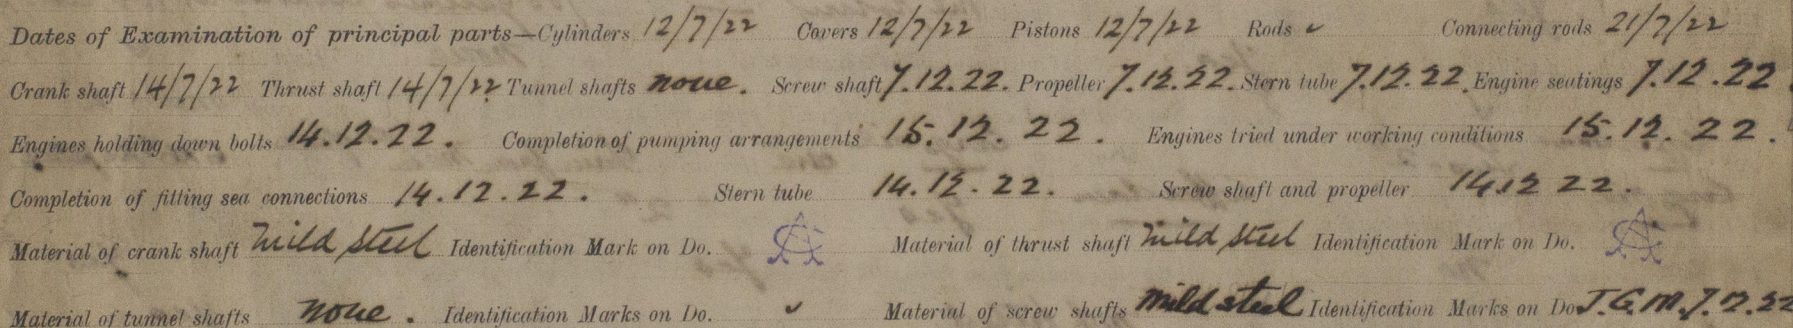 Dates of Examination of principal parts—Cylinders 12/7/22 Covers 12/7/22 Pistons 12/7/22 Rods ✓ Connecting rods 21/7/22
Crank shaft 14/7/22 Thrust shaft 14/7/22 Tunnel shafts none. Screw shaft 7.12.22. Propeller 7.12.22. Stern tube 7.12.22. Engine seatings 7.12.22
Engines holding down bolts 14.12.22. Completion of pumping arrangements 15.12.22. Engines tried under working conditions 15.12.22.
Completion of fitting sea connections 14.12.22. Stern tube 14.12.22. Screw shaft and propeller 14.12 22.
Material of crank shaft Mild steel Identification Mark on Do. Material of thrust shaft Mild steel Identification Mark on Do.
Material of tunnel shafts none. Identification Marks on Do. ✓ Material of screw shafts Mild steel Identification Marks on Do J.G.M. 7.12.22